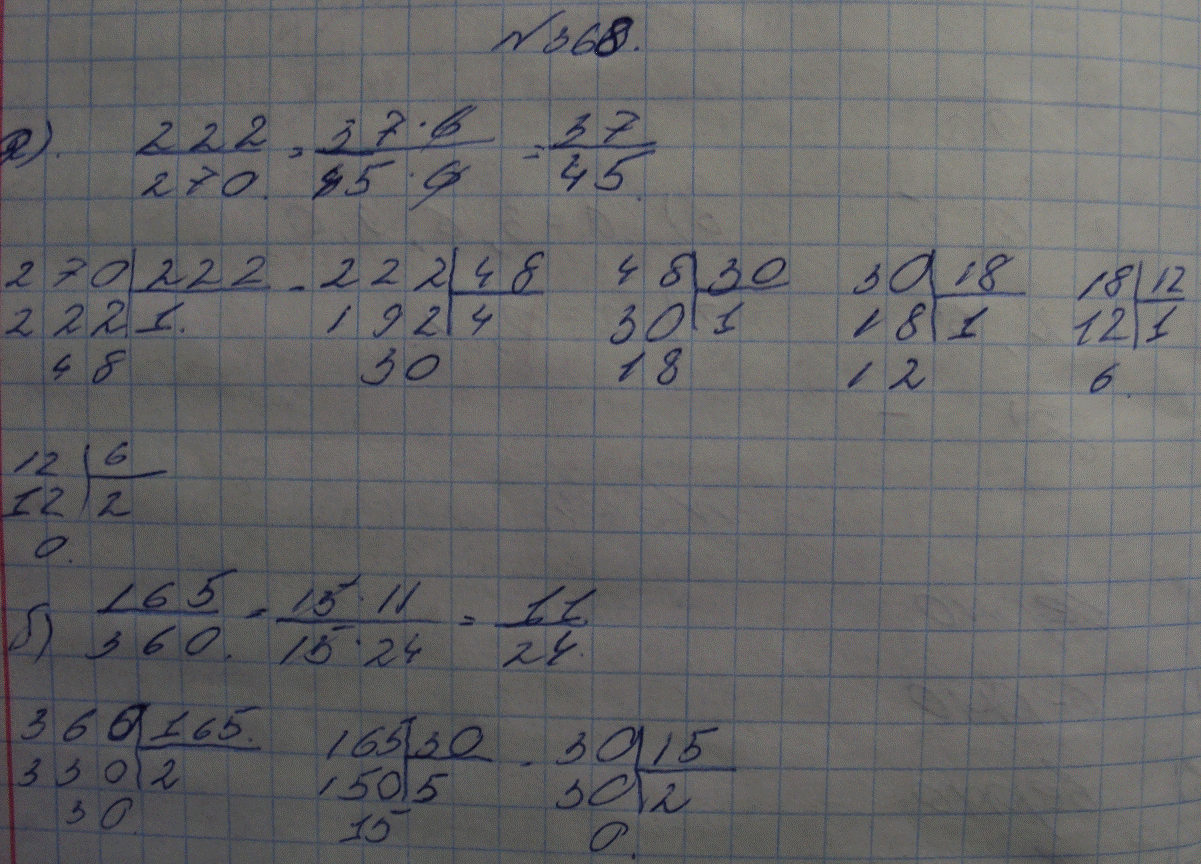 № 368.
а). 222/270. = 37·6/45·6 = 37/45.
270 | 222 - 222 | 48 48 | 30 30 | 18 18 | 12
222 | 1. 192 | 4 30 | 1 18 | 1 12 | 1
48 30 18 12 6.
12 | 6
12 | 2
0.
б) 165/360. = 15·11/15·24 = 11/24.
360 | 165. 165 | 30 - 30 | 15
330 | 2 150 | 5 30 | 2
30 15 0.